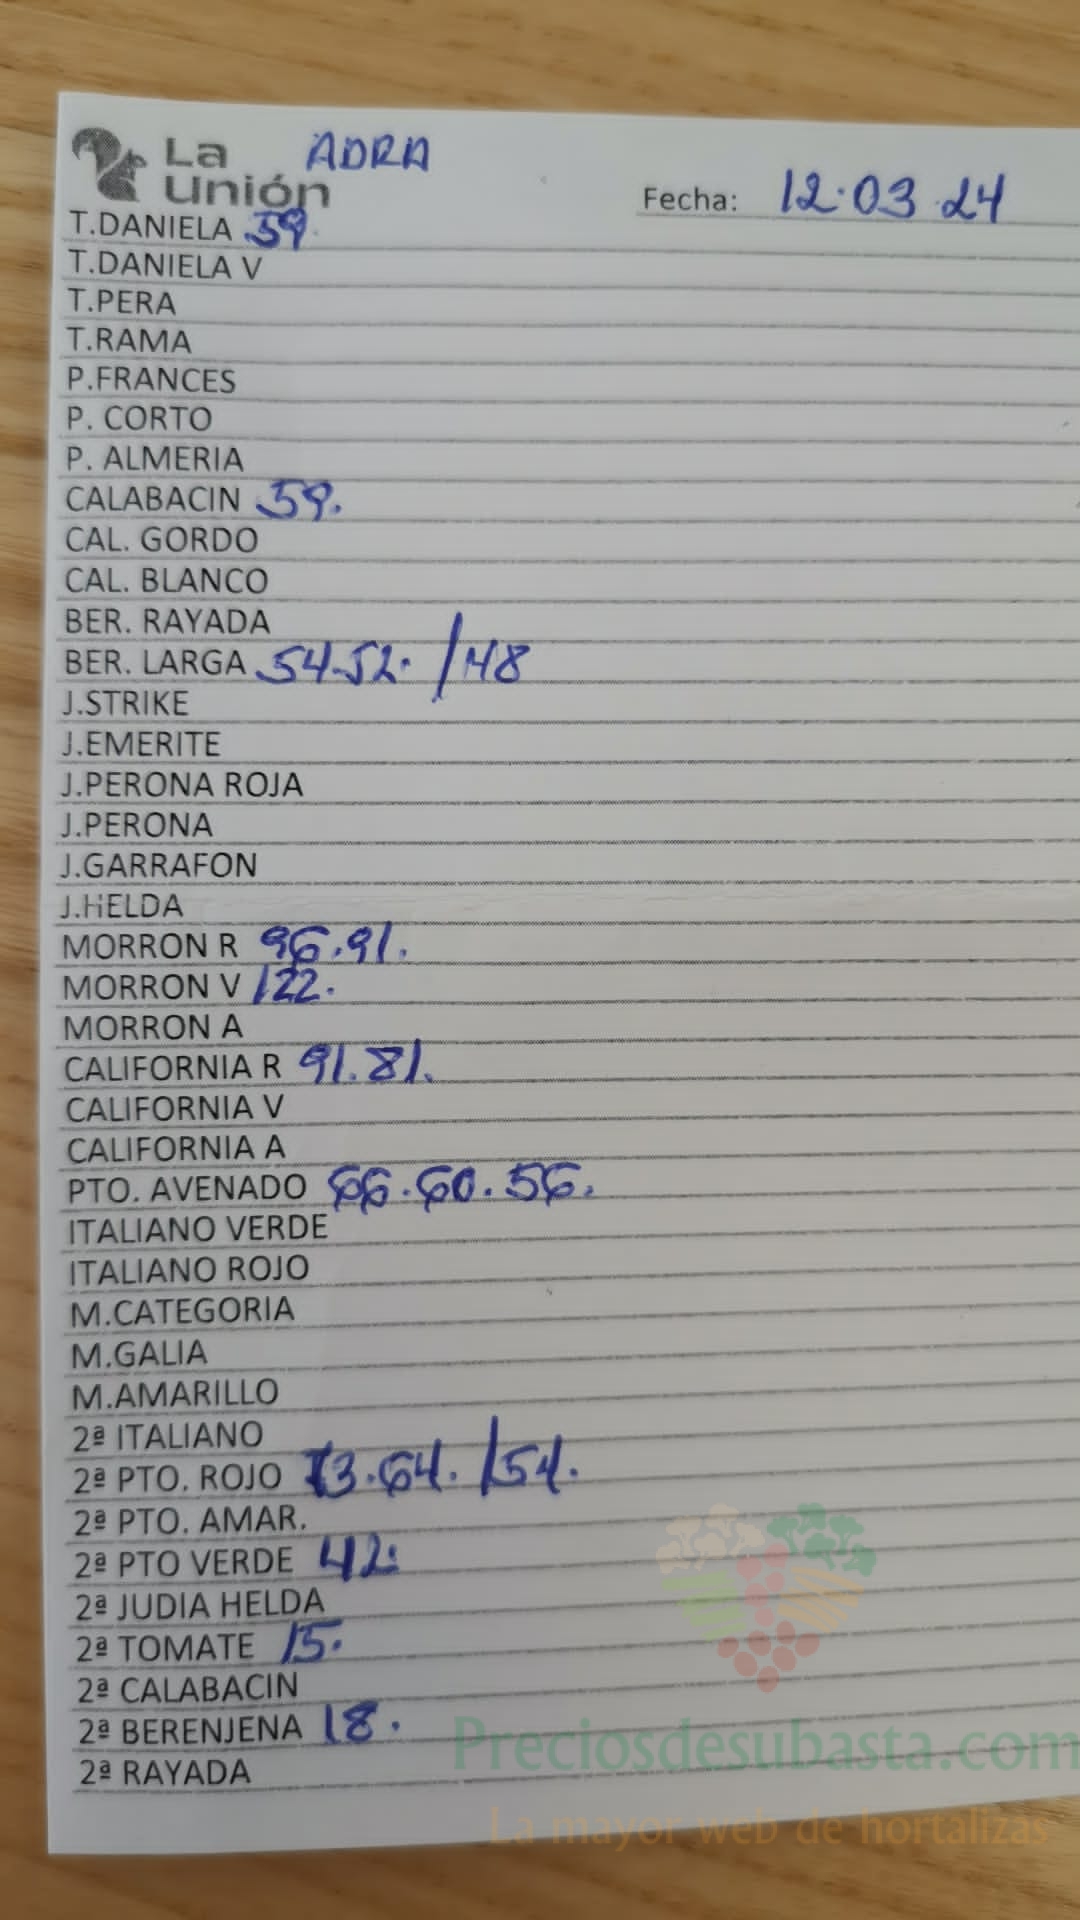 La Unión ADRA
Fecha: 12.03.24
T.DANIELA 59.
T.DANIELA V
T.PERA
T.RAMA
P.FRANCES
P. CORTO
P. ALMERIA
CALABACIN 59.
CAL. GORDO
CAL. BLANCO
BER. RAYADA
BER. LARGA 54.52. /48
J.STRIKE
J.EMERITE
J.PERONA ROJA
J.PERONA
J.GARRAFON
J.HELDA
MORRON R 96.91.
MORRON V 122.
MORRON A
CALIFORNIA R 91.81.
CALIFORNIA V
CALIFORNIA A
PTO. AVENADO 66.60.56.
ITALIANO VERDE
ITALIANO ROJO
M.CATEGORIA
M.GALIA
M.AMARILLO
2ª ITALIANO
2ª PTO. ROJO 73.64. /54.
2ª PTO. AMAR.
2ª PTO VERDE 42.
2ª JUDIA HELDA
2ª TOMATE 15.
2ª CALABACIN
2ª BERENJENA 18.
2ª RAYADA
Preciosdesubasta.com
La mayor web de hortalizas